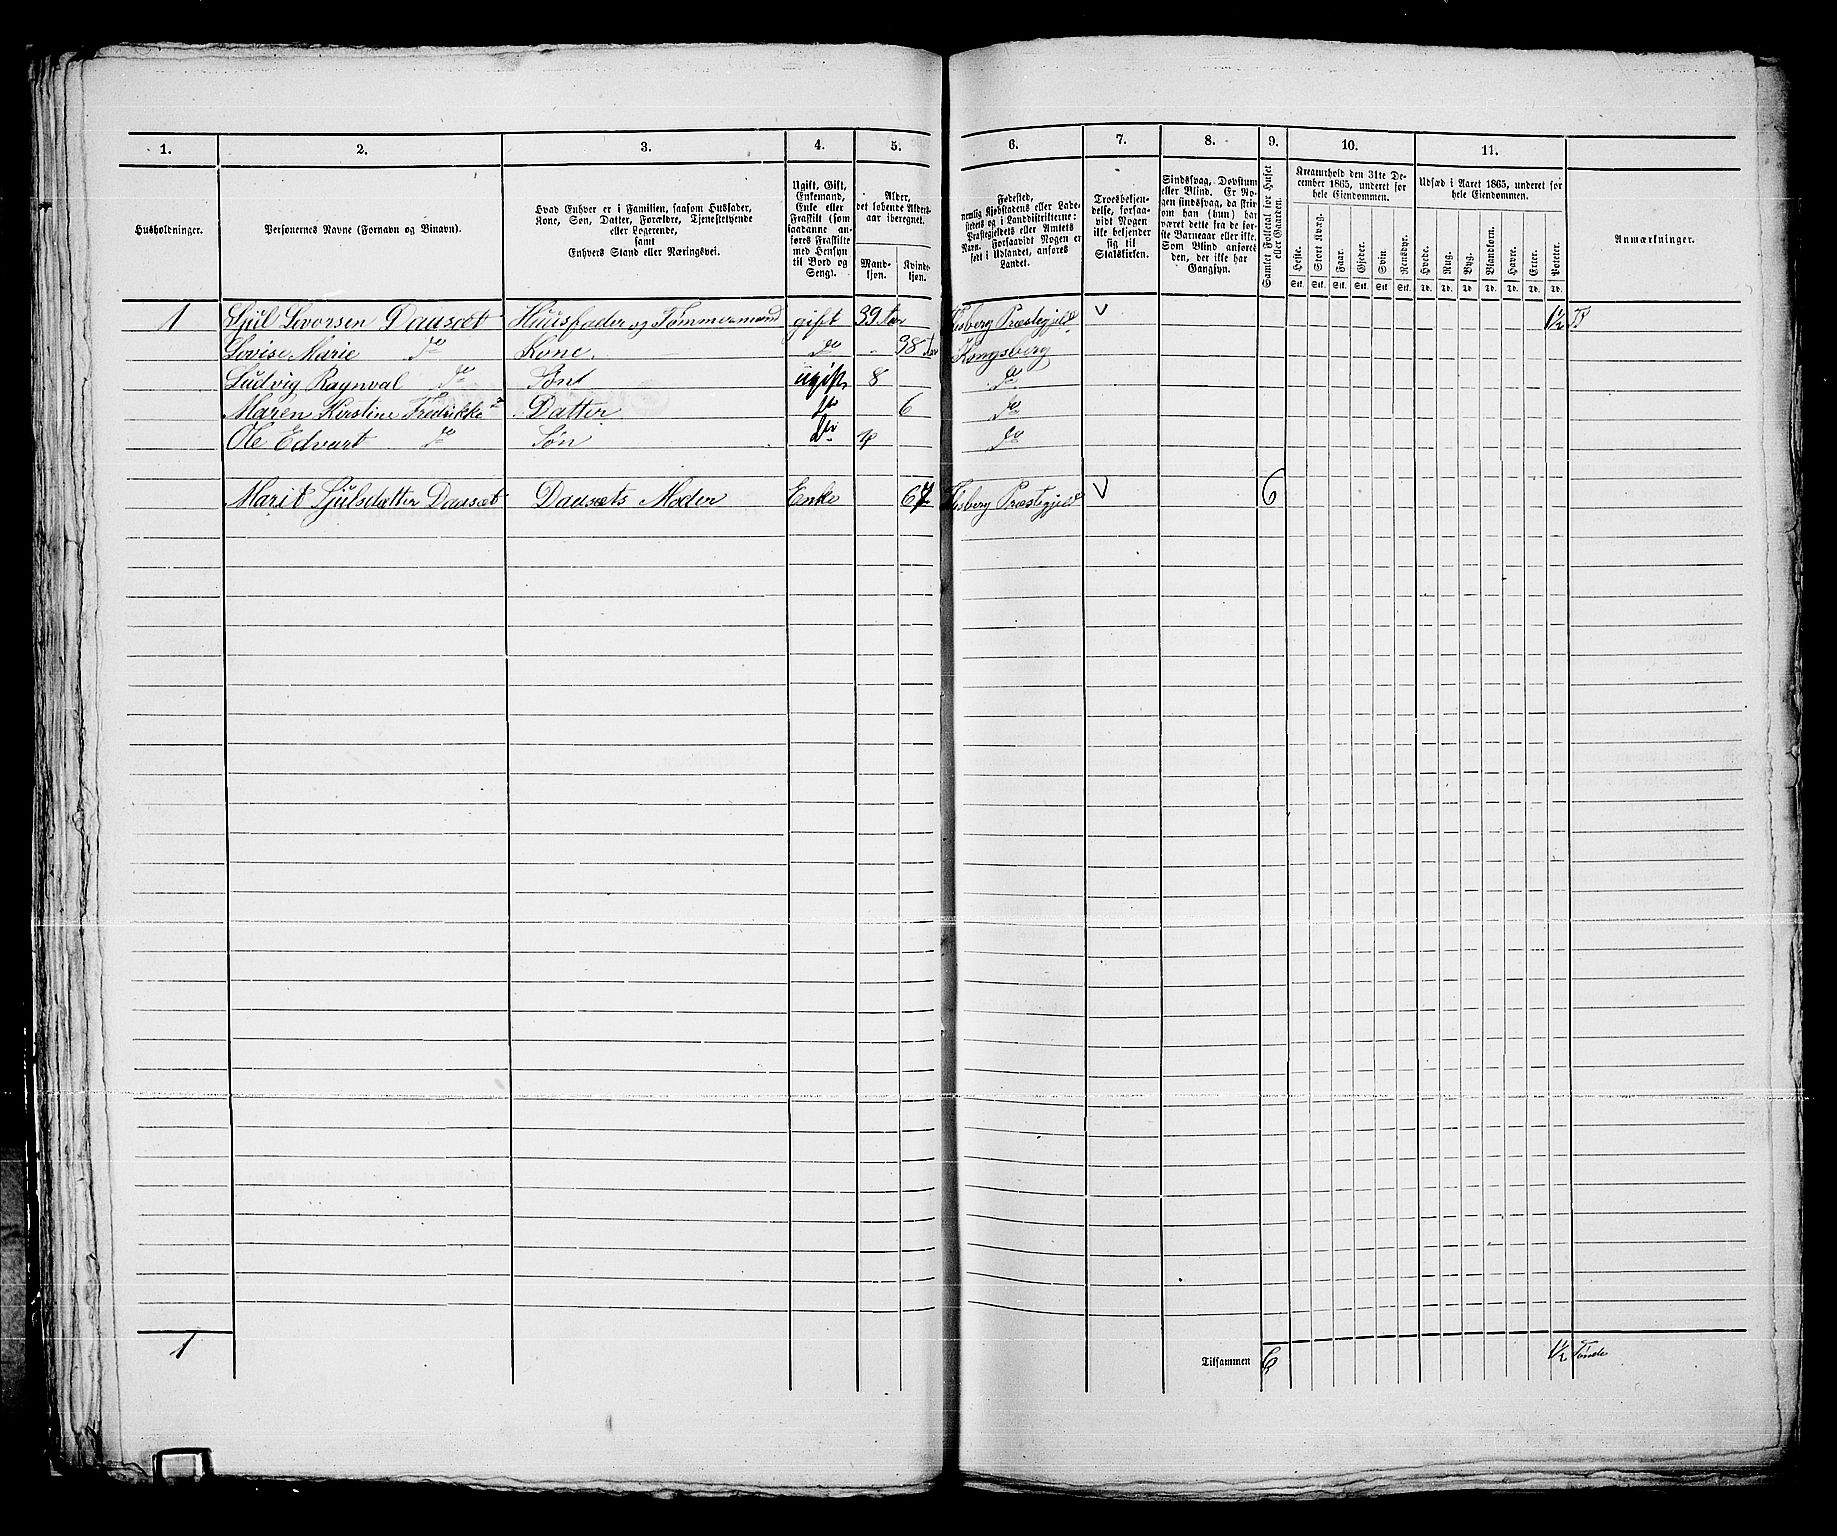 1. 2. 3. 4. 5. 6. 7. 8. 9. 10. 11.
Husholdninger.
Personernes Navne (Fornavn og Binavn).
Hvad Enhver er i Familien, saasom Husfader,
Kone, Søn, Datter, Forældre, Tjenestetyende
eller Logerende,
samt
Enhvers Stand eller Næringsvei.
Ugift, Gift,
Enkemand,
Enke eller
Fraskilt (som
saadanne an-
føres Fraskilte
med Hensyn
til Bord og
Seng).
Alder,
det løbende Alders-
aar iberegnet.
Mand-
kjøn.
Kvind-
kjøn.
Fødested,
nemlig Kjøbstadens eller Lade-
stedets og i Landdistrikterne:
Præstegjeldets eller Amtets
Navn. Forsaavidt Nogen er
født i Udlandet, anføres
Landet.
Troesbekjen-
delse, forsaa-
vidt Nogen
ikke bekjender
sig til
Statskirken.
Sindssvag, Døvstum
eller Blind. Er No-
gen sindssvag, da skri-
ves om han (hun) har
været det fra de før-
ste Barneaar eller ikke.
Som Blind anføres
den, der ikke har
Gangsyn.
Samlet Folketal for Huset
eller Gaarden.
Kreaturhold den 31te De-
cember 1865, underet for
hele Eiendommen.
Heste. Stort Kvæg. Faar. Gjeder. Svin. Rensdyr.
Stk. Stk. Stk. Stk. Stk. Stk.
Udsæd i Aaret 1865, underet for
hele Eiendommen.
Hvede. Rug. Byg. Blandkorn. Havre. Erter. Poteter.
Td. Td. Td. Td. Td. Td. Td.
Anmærkninger.
1 Sjul Levorsen Dausæt Huusfader og Tømmermand gift 39 Flesberg Præstegjeld v 1/2 T
Lovise Marie do Kone. do 38 Kongsberg
Ludvig Raynval do Sønt ugift 8 do
Maren Kirstine Fredrikke do Datter do 6 do
Ole Edvart do Søn do 4 do
Marit Sjulsdatter Dausæt Dausæts Moder Enke 67 Flesberg Præstegjeld v 6
1 Tilsammen 6 1/2 Tønde